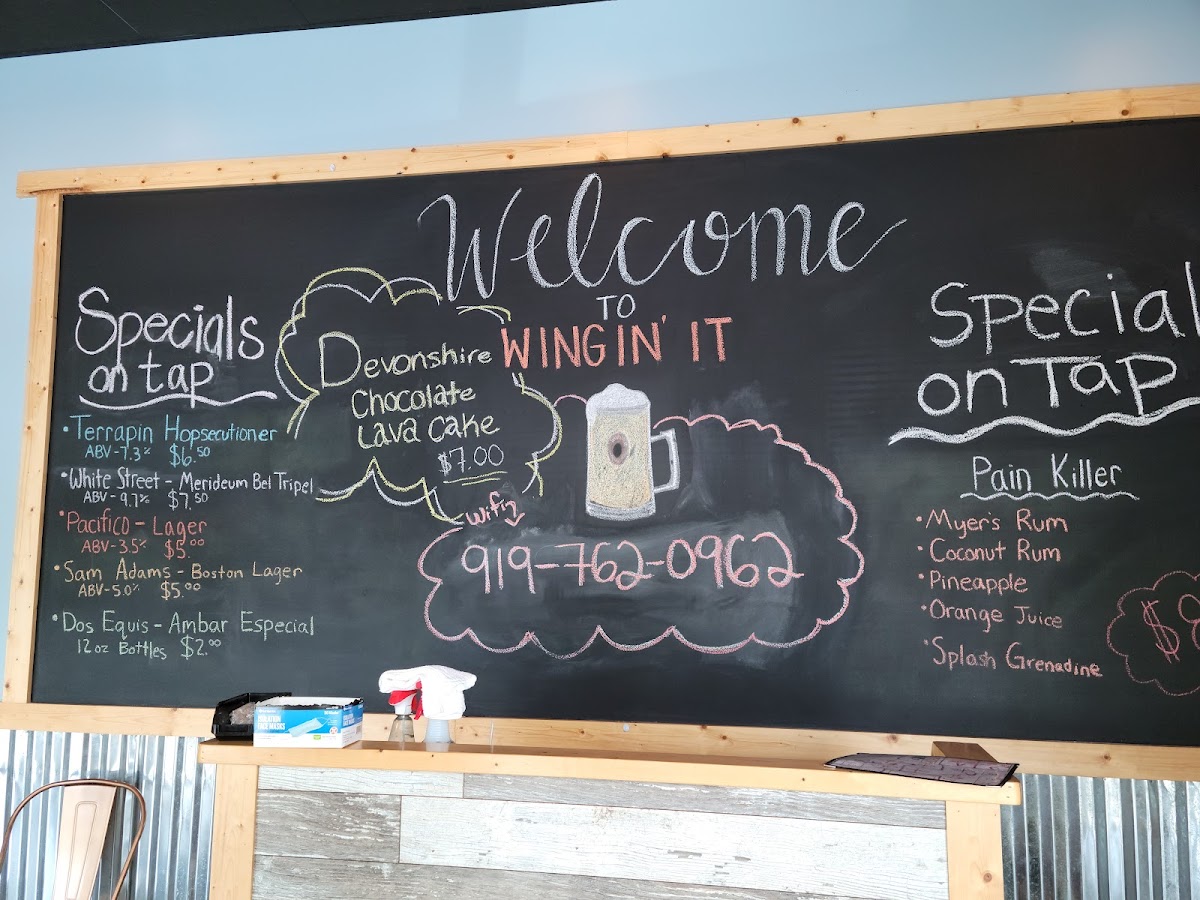 Welcome
TO
WINGIN' IT
Specials
on tap
• Terrapin Hopsecutioner
ABV-7.3% $6.50
• White Street - Merideum Bel Tripel
ABV-9.7% $7.50
• Pacifico - Lager
ABV-3.5% $5.00
• Sam Adams - Boston Lager
ABV-5.0% $5.00
• Dos Equis - Ambar Especial
12oz Bottles $2.00
Devonshire
Chocolate
Lava Cake
$7.00
Wifi
919-762-0962
Special
on Tap
Pain Killer
• Myer's Rum
• Coconut Rum
• Pineapple
• Orange Juice
• Splash Grenadine
ISOLATION
FACE MASKS